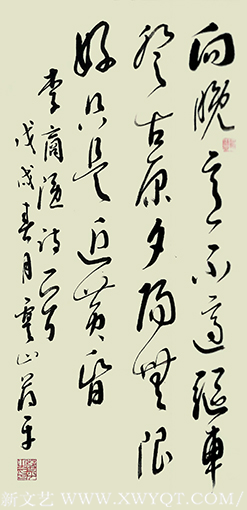 向晚意不適驅車
登古原夕陽無限
好只是近黄昏
李商隱詩一首
戊戌春月雲山
新文艺/WWW.XWYQT.COM/